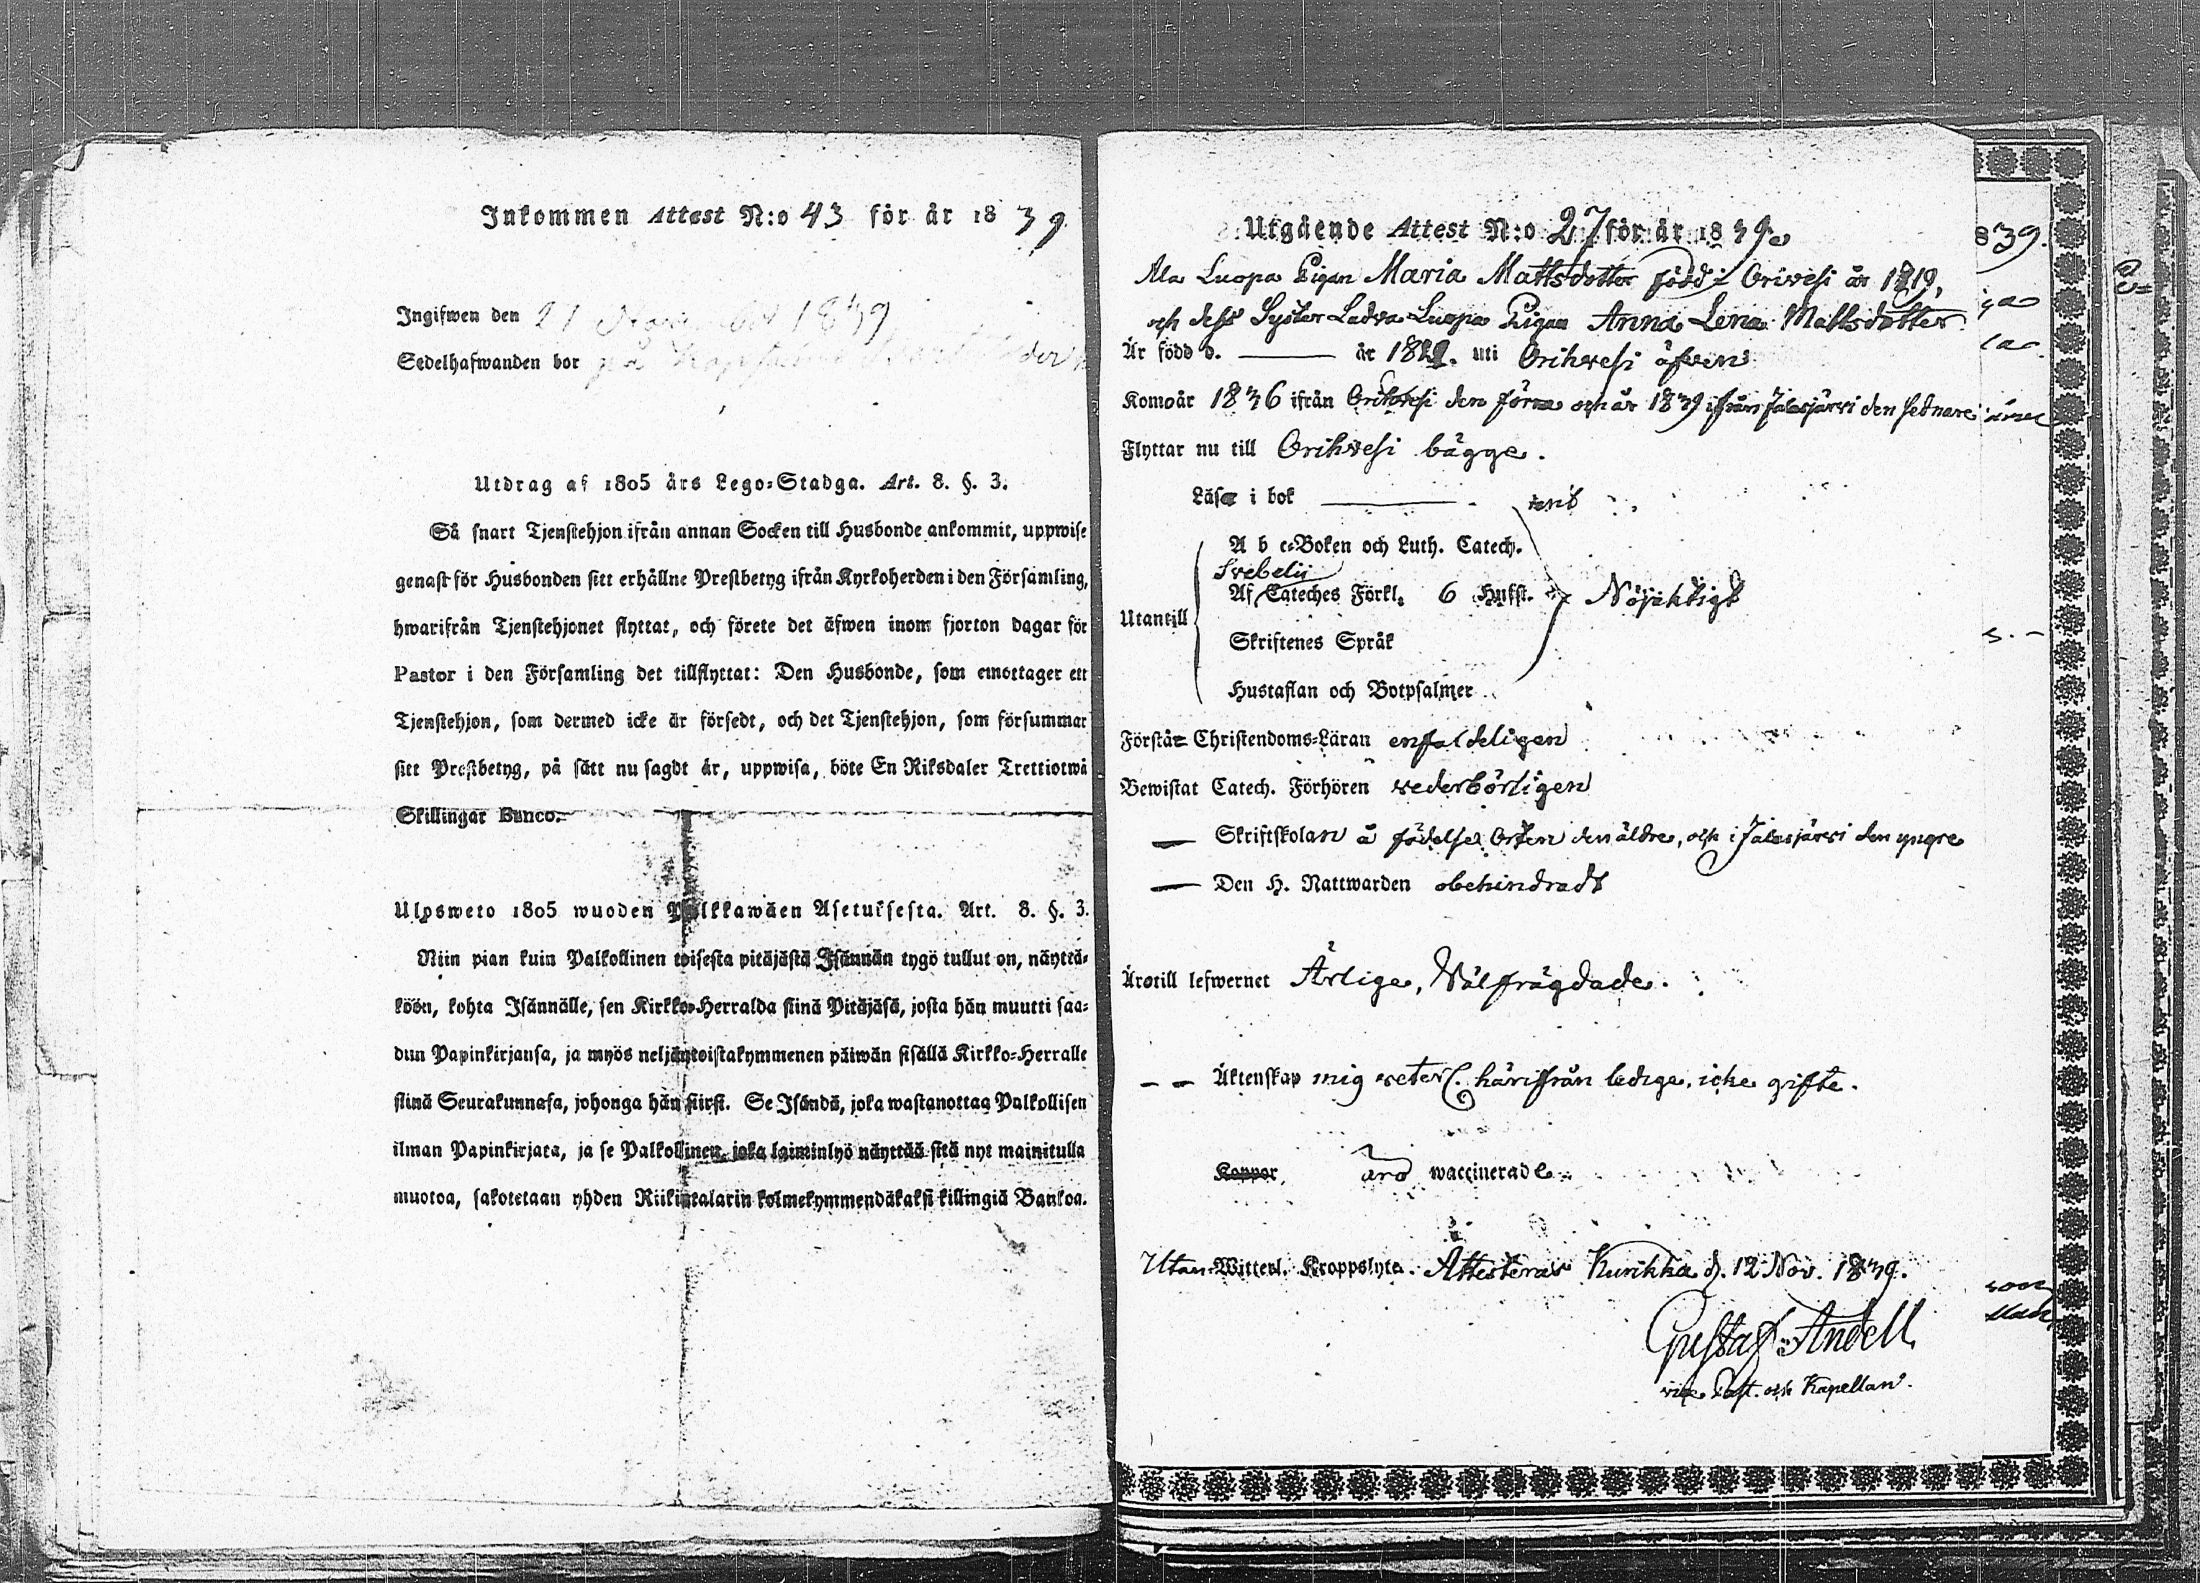 Inkommen Attest N:o 43 för år 1839
Ingifwen den 21 1839
Sedelhafwanden bor på
Utdrag af 1805 års Lego-Stadga. Art. 8. §. 3.
Så snart Tjenstehjon ifrån annan Socken till Husbonde ankommit, uppwise
genast för Husbonden sitt erhållne Prestbetyg ifrån Kyrkoherden i den Församling,
hwarifrån Tjenstehjonet flyttat, och förete det äfwen inom fjorton dagar för
Pastor i den Församling det tillflyttat: Den Husbonde, som emottager ett
Tjenstehjon, som dermed icke är försedt, och det Tjenstehjon, som försummar
sitt Prestbetyg, på sätt nu sagdt är, uppwisa, böte En Riksdaler Trettiotwå
Skillingar Banco.
Ulpsweto 1805 wuoden Palkkawäen Asetuksesta. Art. 8. §. 3.
Niin pian kuin Palkollinen toisesta pitäjästä Isännän tygö tullut on, näyttä-
köön, kohta Isännälle, sen Kirkko-Herralda siinä Pitäjäsä, josta hän muutti saa-
dun Papinkirjansa, ja myös neljäntoistakymmenen päiwän sisällä Kirkko-Herralle
siinä Seurakunnasa, johonga hän siirsi. Se Isändä, joka wastanottaa Palkollisen
ilman Papinkirjata, ja se Palkollinen, joka laiminlyö näyttää sitä nyt mainitulla
muotoa, sakotetaan yhden Riikintalarin kolmekymmendäkaksi killingiä Bankoa.
Utgående Attest N:o 27 för år 1839.
Ala Luopa Pigan Maria Mattsdotter född i Orivesi år 1819,
och dess Syster Ladva Luopa Pigan Anna Lena Mattsdotter
Är född d. — år 1822. uti Orihvesi äfven
Komo år 1836 ifrån Orihvesi den förra och år 1839 ifrån Jalasjärvi den sednare
Flyttar nu till Orihvesi bägge.
Läsa i bok —
A b c-Boken och Luth. Catech.
Svebelii
Af Cateches Förkl. 6 Hufst. Nöjaktigt
Utantill
Skriftenes Språk
Hustaflan och Botpsalmer
Förstå Christendoms-Läran enfaldeligen
Bewistat Catech. Förhören vederbörligen
— Skriftskolan å födelse Orten den äldre, och i Jalasjärvi den yngre
— Den H. Nattwarden obehindradt
Äro till lefwernet Ärlige, Välfrägdade.
— — Äktenskap mig veterl. härifrån ledige, icke gifte.
Koppor, äro waccinerade.
Utan Witterl. Kroppslyte. Attesterar Kurikka d. 12 Nov. 1839.
Gustaf Andell
vice Past. och Kapellan.
839.